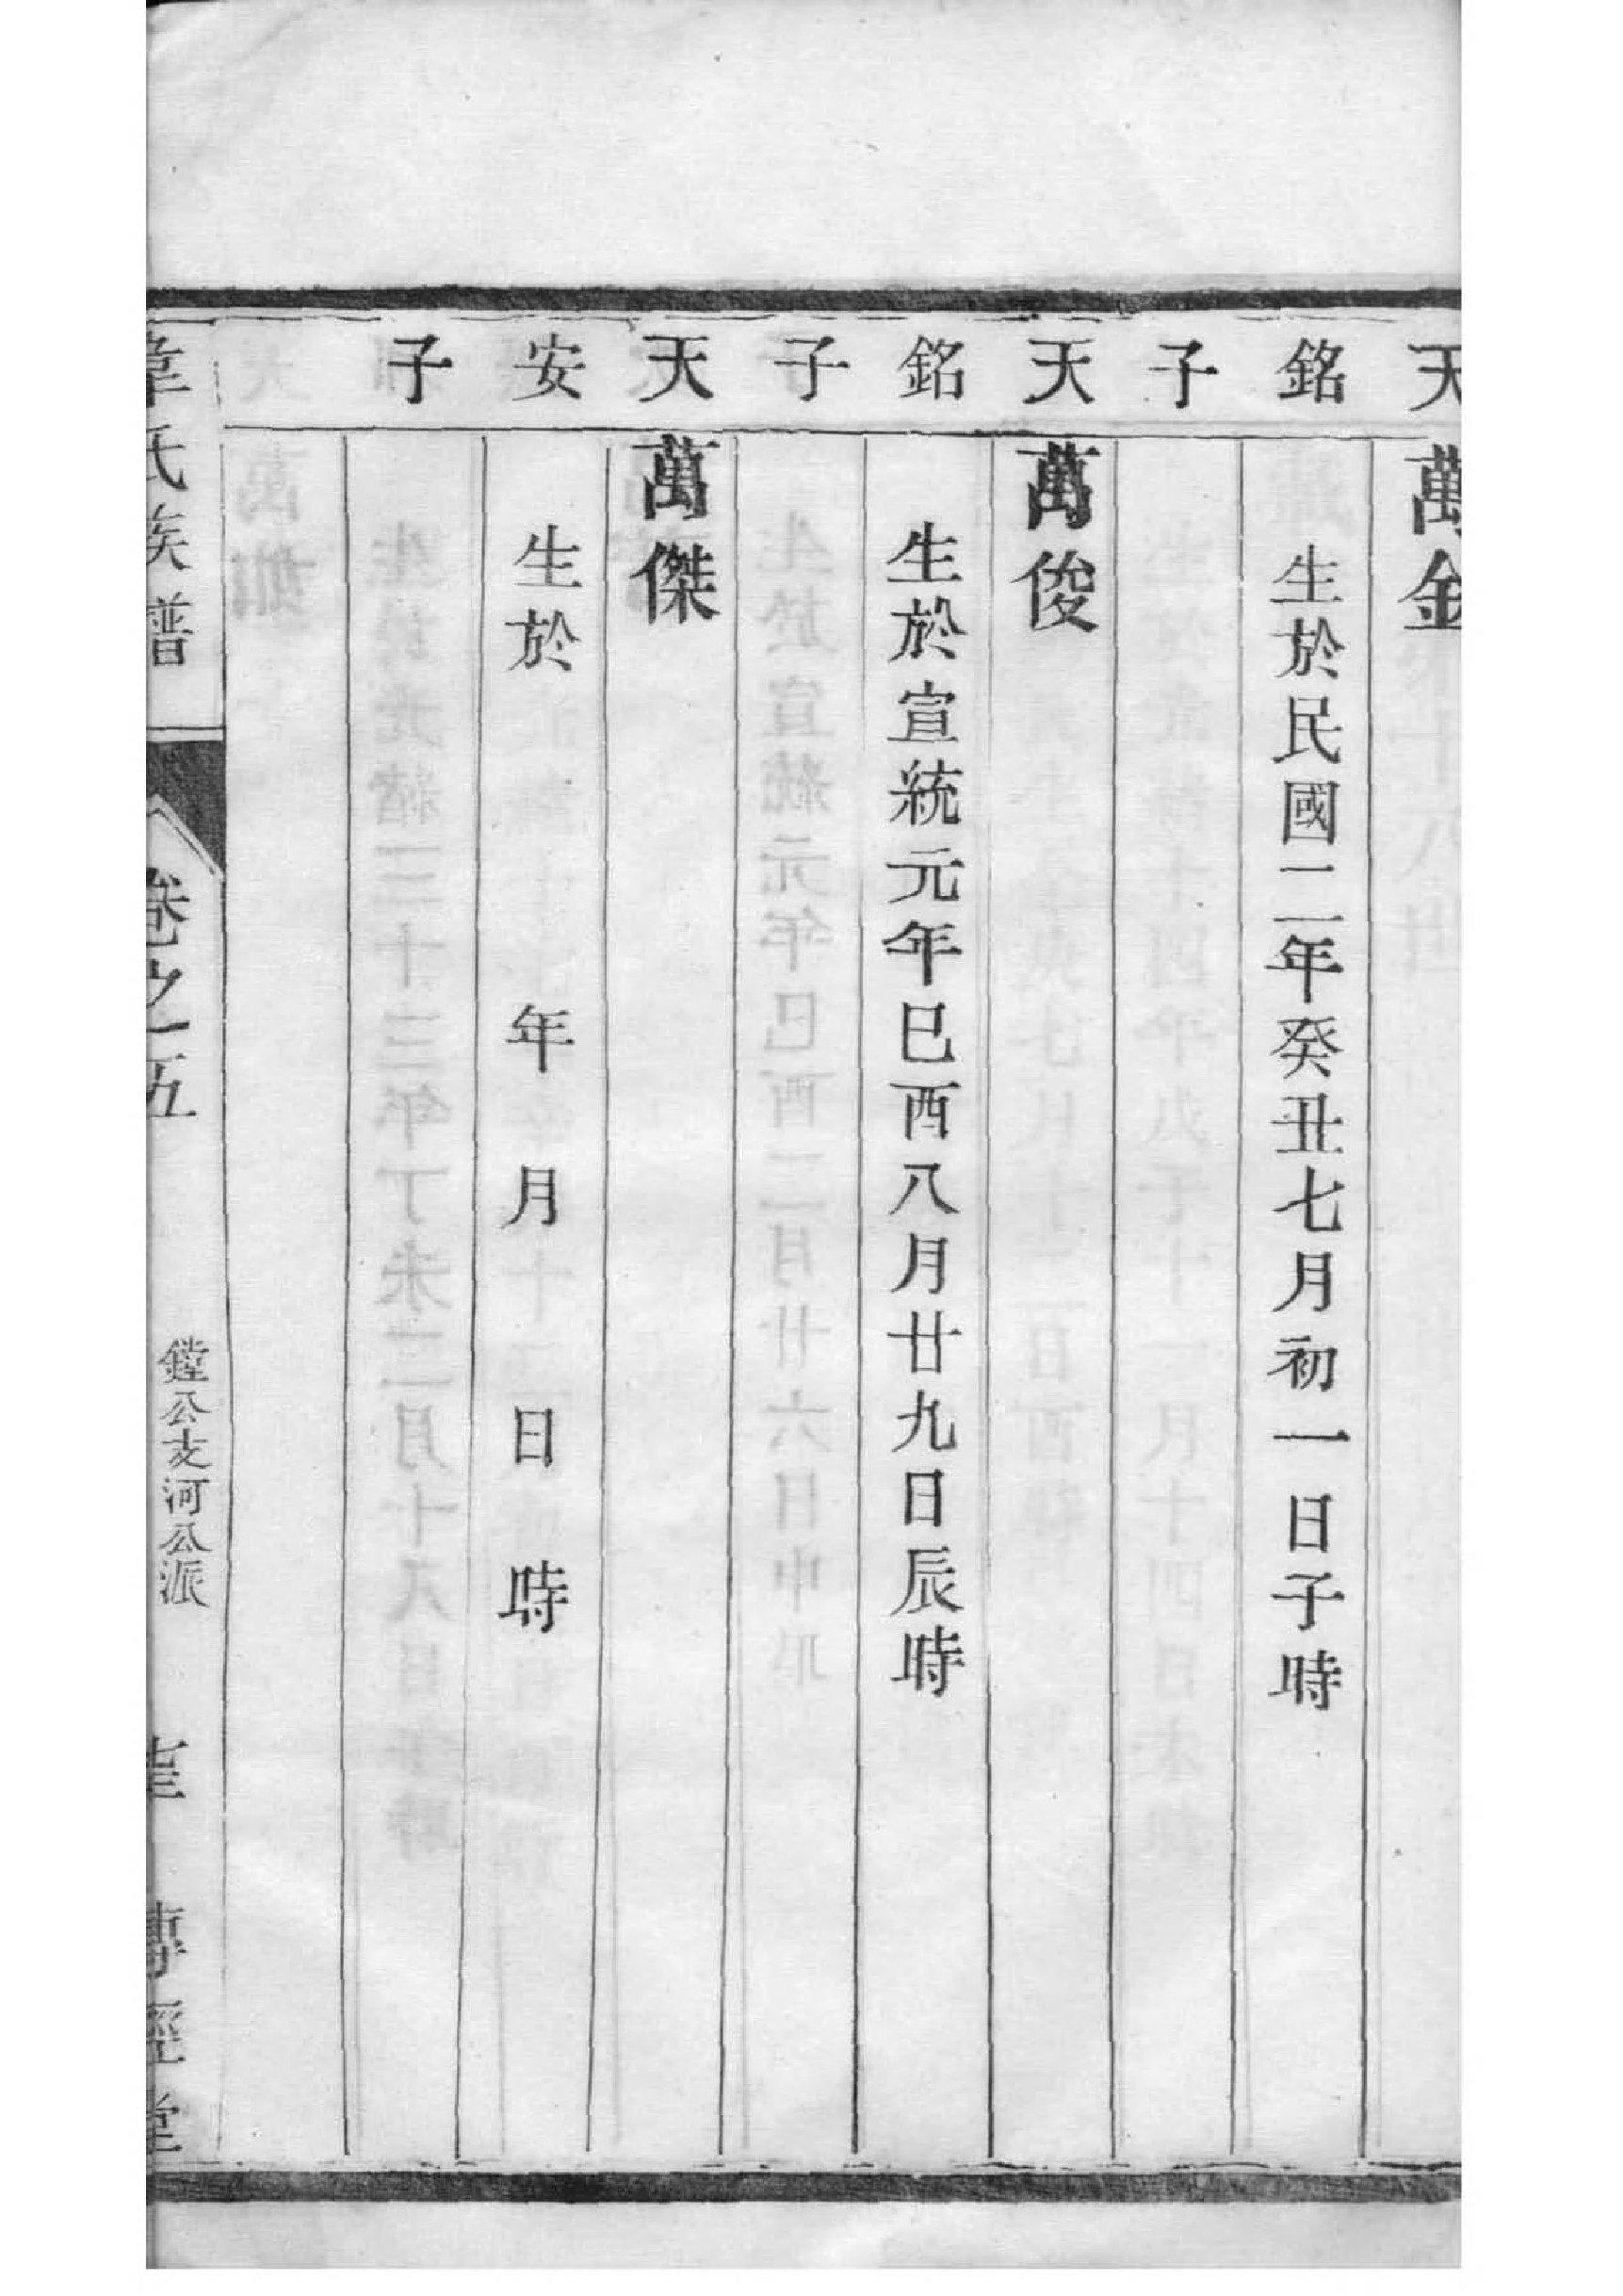 天 萬金
銘 生於民國二年癸丑七月初一日子時
子
天 萬俊
銘 生於宣統元年巳酉八月廿九日辰時
子
天 萬傑
安 生於 年 月 日 時
子
韋氏族譜 卷之五 鏜公支河公派 傳經堂